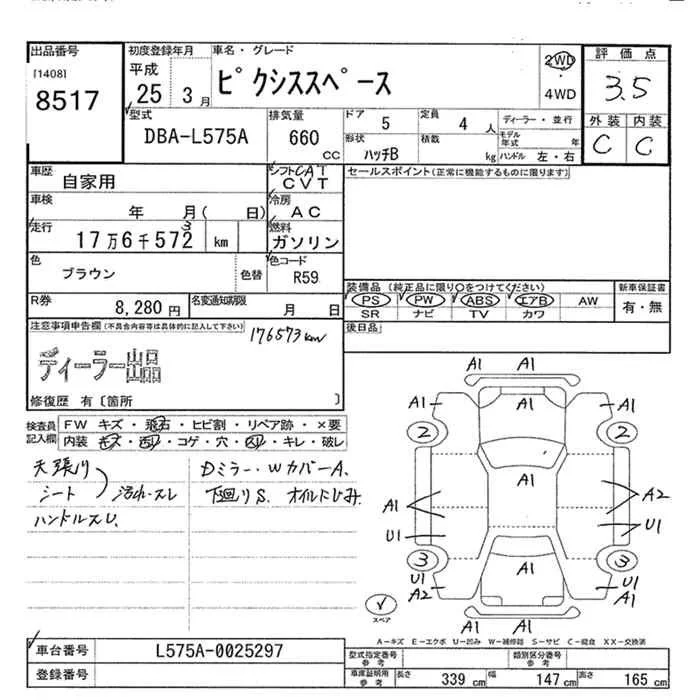 出品番号
[1408]
8517
初度登録年月
平成
25 3月
車名・グレード
ピクシススペース
2WD
・
4WD
評価点
3.5
外装 内装
C C
型式
DBA-L575A
排気量
660 cc
ドア 5
定員 4 人
形状 ハッチB
積載 kg
ディーラー・並行
モデル年式 年
ハンドル 左・右
車歴
自家用
シフト CAT
CVT
セールスポイント(正常に機能するものに限ります)
車検
年 月( 日)
冷房
AC
走行
17万6千572 km
3
燃料
ガソリン
色
ブラウン
色替
色コード
R59
装備品(純正品に限り○をつけてください)
PS PW ABS エアB AW
SR ナビ TV カワ
新車保証書
有・無
R券
8,280円
名変通知期限
月 日
後日品
注意事項申告欄(不具合内容等は具体的に記入して下さい)
176573km
ディーラー出品
修復歴 有〔箇所 〕
検査員記入欄
FW キズ・飛石・ヒビ割・リペア跡・×要
内装・キズ・汚れ・コゲ・穴・スレ・キレ・破レ
天張り
シート 汚れ・スレ
ハンドルスレ
Dミラー・WカバーA.
下廻りS. オイルにじみ.
A1
A1 A1
A1 A1 A1
2 2
A1 A1 A2
U1 U1
3 3
A1
U1 U1
A2 A1 A2
A1 A1
スペア
A-キズ E-エクボ U-凹み W-補修跡 S-サビ C-腐食 XX-交換済
車台番号
L575A-0025297
登録番号
型式指定番号
参考
類別区分番号
参考
車庫証明用
参考
長さ 339 cm
幅 147 cm
高さ 165 cm